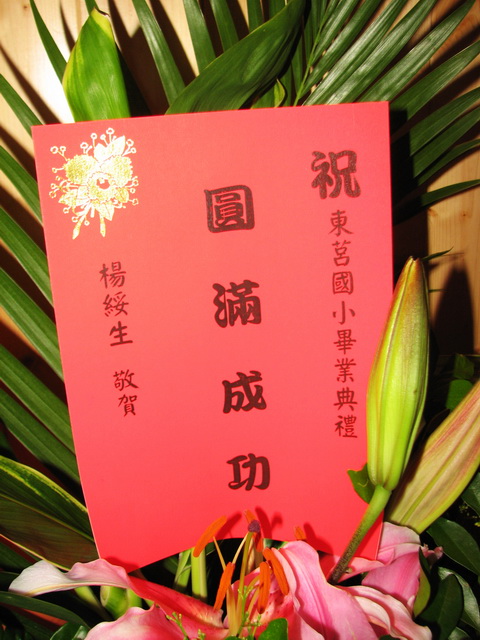 祝
東莒國小畢業典禮
圓滿成功
楊綏生 敬賀